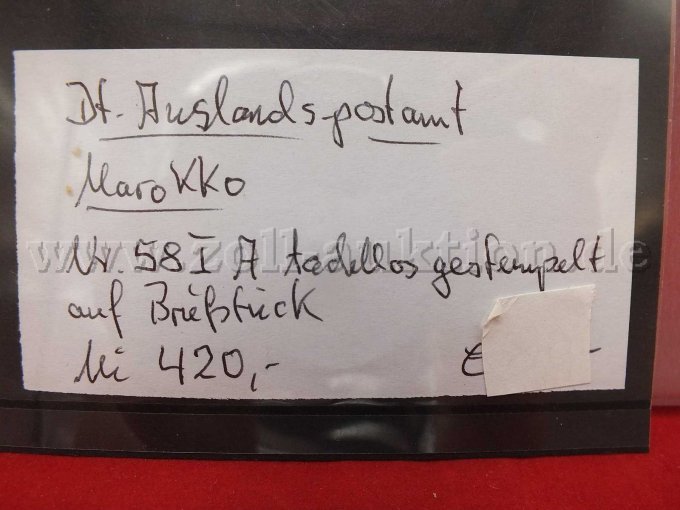 Dt. Auslandspostamt
Marokko
www.zoll-auktion.de
Nr. 58 I A tadellos gestempelt
auf Briefstück
Mi 420,-
€ -